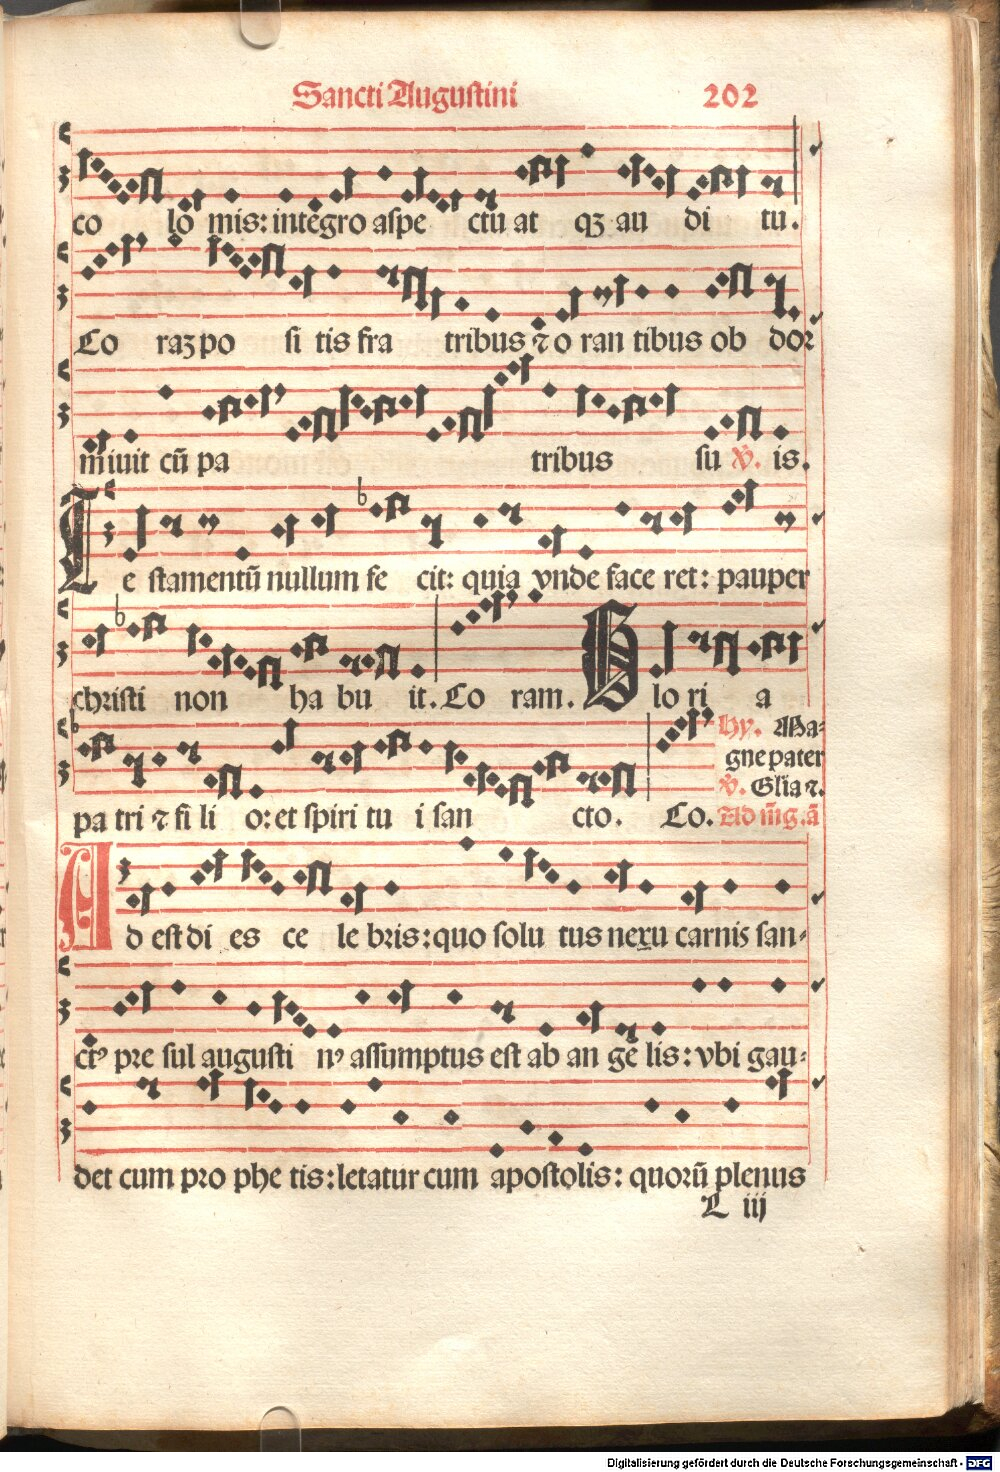 Sancti Augustini 202
co lo mis: integro aspe ctu at qꝫ au di tu.
Co raꝫ po si tis fra tribus ⁊ o ran tibus ob doꝛ
miuit cū pa tribus su ℣. is.
Te stamentū nullum fe cit: quia vnde face ret: pauper
christi non ha bu it. Co ram. Glo ri a
hy. Ma-
gne pater
℣. Glīa ⁊.
pa tri ⁊ fi li o: et spiri tu i san cto. Co. Ad m̄g. ā
Ad est di es ce le bris: quo solu tus nexu carnis san-
ctꝰ pre sul augusti nꝰ assumptus est ab an ge lis: vbi gau-
det cum pro phe tis: letatur cum apostolis: quorū plenus
L iij
Digitalisierung gefördert durch die Deutsche Forschungsgemeinschaft - DFG